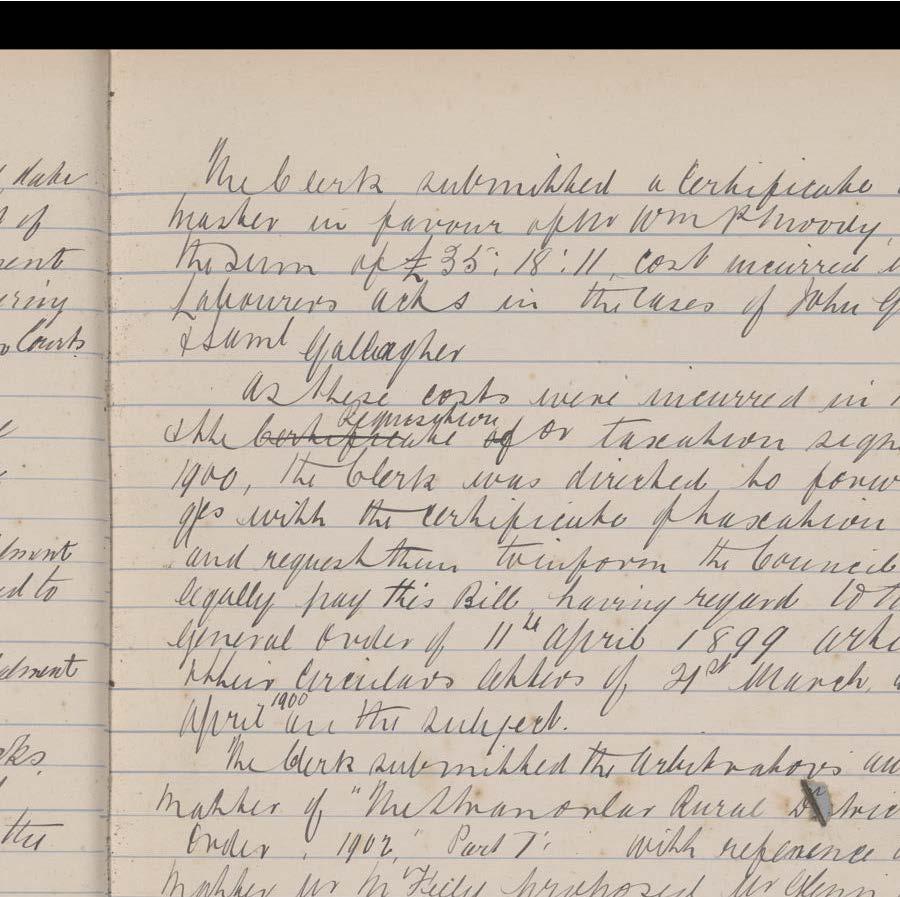 date
of
Courts
the
The Clerk submitted a Certificate
Master in favour of Mr Wm P Moody
the Sum of £35: 18: 11, cost incurred
Labourers acts in the Cases of John G
& Saml Gallagher
As these costs were incurred in
Requisition
& the Certificate of or taxation sign
1900, the Clerk was directed to forw
with the Certificate of taxation
and request them to inform the Council
legally pay this Bill, having regard to
General Order of 11th April 1899
their Circulars letters of 21st March
1900
April on the subject.
The Clerk submitted the Arbitrators
Matter of "The Stranorlar Rural District
Order, 1902," Part 1. with reference
Matter Mr McFeely proposed Mr Glenn